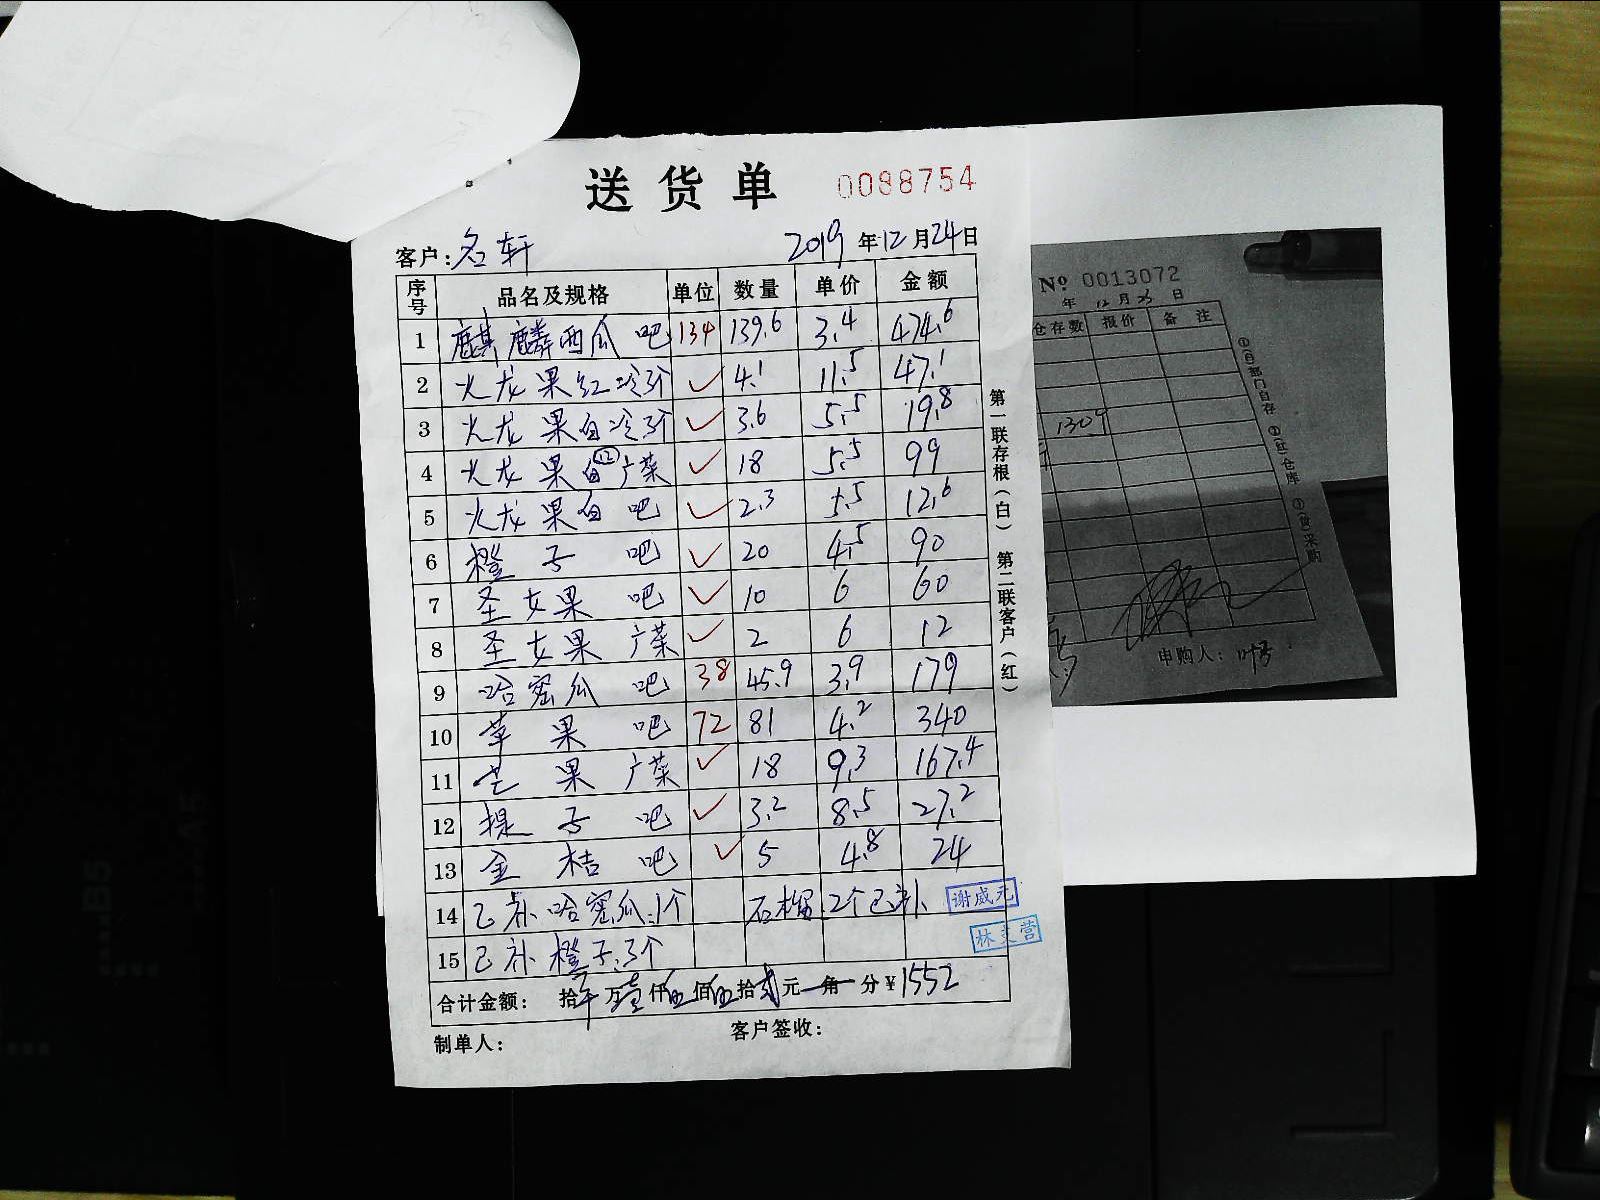 送货单 0088754
客户: 名轩 2019年12月24日
序号 品名及规格 单位 数量 单价 金额
1 麒麟西瓜 吧 134 139.6 3.4 474.6
2 火龙果红冷刁 ✓ 4.1 11.5 47.1
3 火龙果白冷刁 ✓ 3.6 5.5 19.8
4 火龙果白(12)广菜 ✓ 18 5.5 99
5 火龙果白 吧 ✓ 2.3 5.5 12.6
6 橙子 吧 ✓ 20 4.5 90
7 圣女果 吧 ✓ 10 6 60
8 圣女果 广菜 ✓ 2 6 12
9 哈密瓜 吧 38 45.9 3.9 179
10 苹果 吧 72 81 4.2 340
11 芒果 广菜 ✓ 18 9.3 167.4
12 提子 吧 ✓ 3.2 8.5 27.2
13 金桔 吧 ✓ 5 4.8 24
14 已补哈密瓜:1个 石榴.2个已补 谢威元
15 已补橙子:3个 林支营
合计金额: 拾 万壹仟伍佰伍拾贰元 角 分¥1552
制单人: 客户签收:
第一联存根(白) 第二联客户(红)
Nº 0013072
年 12月23日
仓存数 报价 备注
1309
①(白)部门自存 ②(红)仓库 ③(黄)采购
申购人:
B5
A5